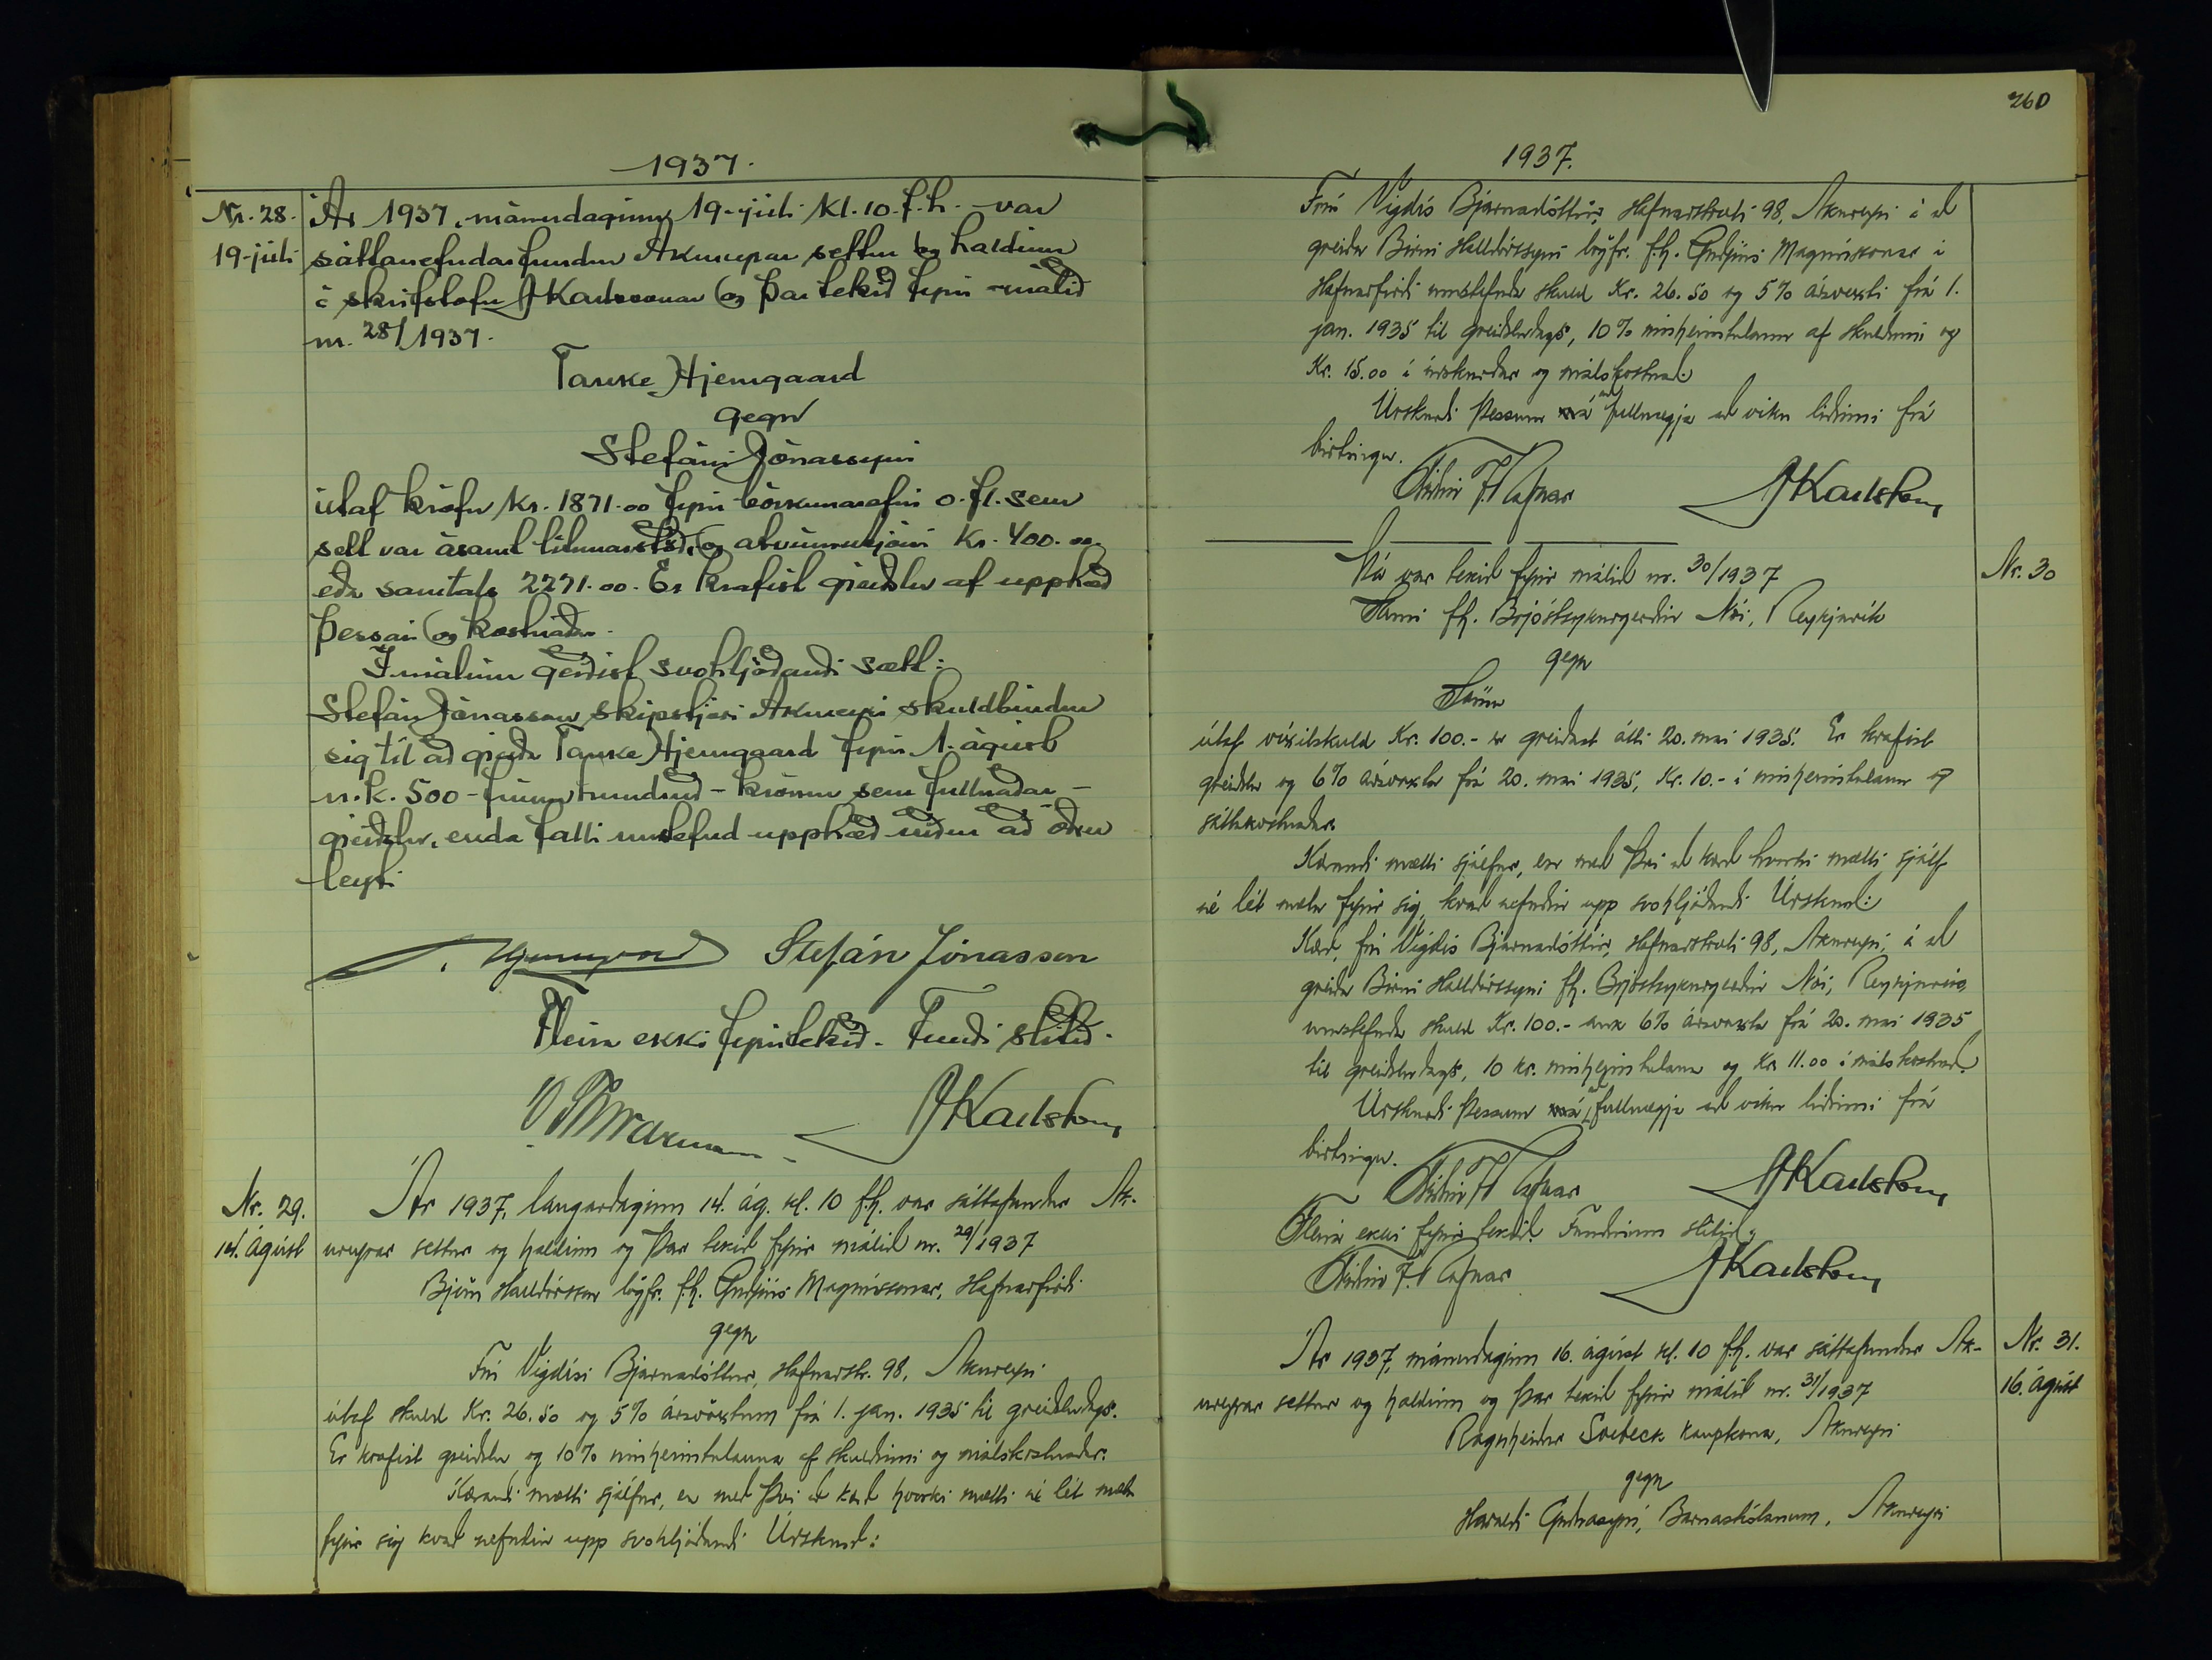 1937.
Nr. 28.
19. júlí
Ár 1937, mánudaginn 19. júlí kl. 10. f.h. var
sáttanefndarfundur Akureyrar settur og haldinn
á skrifstofu J Karlssonar og þar tekið fyrir málið
nr. 28/1937.
Tanke Hjemgaard
gegn
Stefáni Jónassyni
útaf kröfu kr. 1871.00 fyrir o.fl. sem
selt var ásamt og atvinnutjóni kr. 400.00
eða samtals 2271.00. Er krafist greiðslu af upphæð
þessari og kostnaðar.
Í málinu gerðist svohljóðandi sætt:
Stefán Jónasson skipstjóri Akureyri skuldbindur
sig til að greiða Tanke Hjemgaard fyrir 1. ágúst
n.k. 500 - fimm hundruð - krónur sem fullnaðar-
greiðslu, enda falli umstefnd upphæð niður að öðru
leyti
Stefán Jónasson
Fleira ekki fyrirtekið. Fundi slitið.
J Karlsson
Nr. 29.
14. ágúst
Ár 1937, laugardaginn 14. ág. kl. 10 f.h. var sáttafundur Ak-
ureyrar settur og haldinn og þar tekið fyrir málið nr. 29/1937
Björn Halldórsson lögfr. f.h. Guðjóns Magnússonar, Hafnarfirði
gegn
Frú Vigdísi Bjarnadóttur, Hafnarstr. 98, Akureyri
útaf skuld kr. 26.50 og 5% ársvöxtum frá 1. jan. 1935 til greiðsludags.
Er krafist greiðslu og 10% innheimtulauna af skuldinni og málskostnaðar.
Kærandi mætti sjálfur, en með því að kærð hvorki mætti né lét mæta
fyrir sig kvað nefndin upp svohljóðandi Úrskurð:
260
1937.
Frú Vigdís Bjarnadóttir, Hafnarstræti 98, Akureyri á að
greiða Birni Halldórssyni lögfr. f.h. Guðjóns Magnússonar í
Hafnarfirði umstefnda skuld kr. 26.50 og 5% ársvexti frá 1.
jan. 1935 til greiðsludags, 10% innheimtulaun af skuldinni og
Kr. 15.00 í úrskurðar og málskostnað.
Úrskurði þessum má fullnægja að viku liðinni frá
birtingu.
J Karlsson
Nr. 30
Þá var tekið fyrir málið nr. 30/1937
Sami f.h. Brjóstsykurgerðin Nói, Reykjavík
gegn
Sömu
útaf víxilskuld kr. 100.- er greiðast átti 20. maí 1935. Er krafist
greiðslu og 6% ársvaxta frá 20. maí 1935, kr. 10.- í innheimtulaun og
sáttakostnaðar.
Kærandi mætti sjálfur, en með því að kærð hvorki mætti sjálf
né lét mæta fyrir sig, kvað nefndin upp svohljóðandi Úrskurð:
Kærð, frú Vigdís Bjarnadóttir, Hafnarstræti 98, Akureyri, á að
greiða Birni Halldórssyni f.h. Brjóstsykurgerðin Nói, Reykjavík,
umstefnda skuld kr. 100.- auk 6% ársvaxta frá 20. maí 1935
til greiðsludags, 10 kr. innheimtulaun og kr. 11.00 í málskostnað.
Úrskurði þessum má fullnægja að viku liðinni frá
birtingu.
J Karlsson
Fleira ekki fyrir tekið. Fundinum slitið.
J Karlsson
Nr. 31.
16. ágúst
Ár 1937, mánudaginn 16. ágúst kl. 10 f.h. var sáttafundur Ak-
ureyrar settur og haldinn og þar tekið fyrir málið nr. 31/1937
Ragnheiður Soebeck kaupkona, Akureyri
gegn
Haraldi Guðnasyni, Barnaskólanum, Akureyri